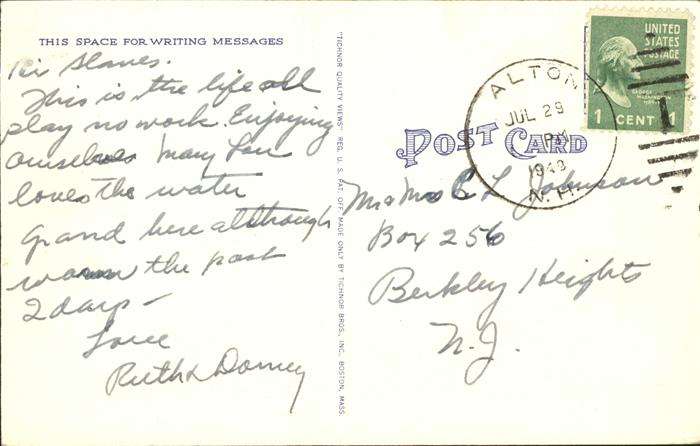 THIS SPACE FOR WRITING MESSAGES
Hi Slaves.
This is the life all
play no work. Enjoying
ourselves Mary Lou
loves the water
grand here although
warm the past
2 days –
Love
Ruth &
"TICHNOR QUALITY VIEWS" REG. U. S. PAT. OFF. MADE ONLY BY TICHNOR BROS., INC., BOSTON, MASS.
POST CARD
ALTON
JUL 29
PM
N.H.
UNITED
STATES
POSTAGE
GEORGE
WASHINGTON
1 CENT 1
Mr & Mrs C L Johnson
Box 256
Berkley Heights
N.J.